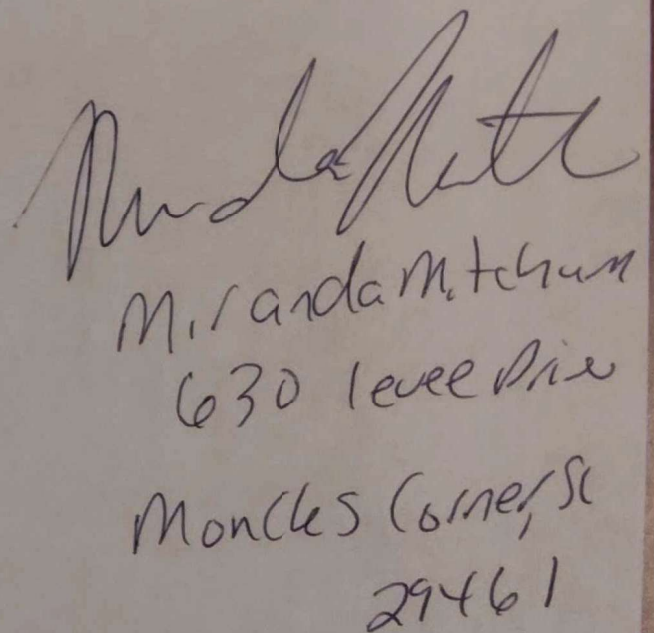 Miranda Mitchum
630 levee Drive
Moncks Corner, SC
29461